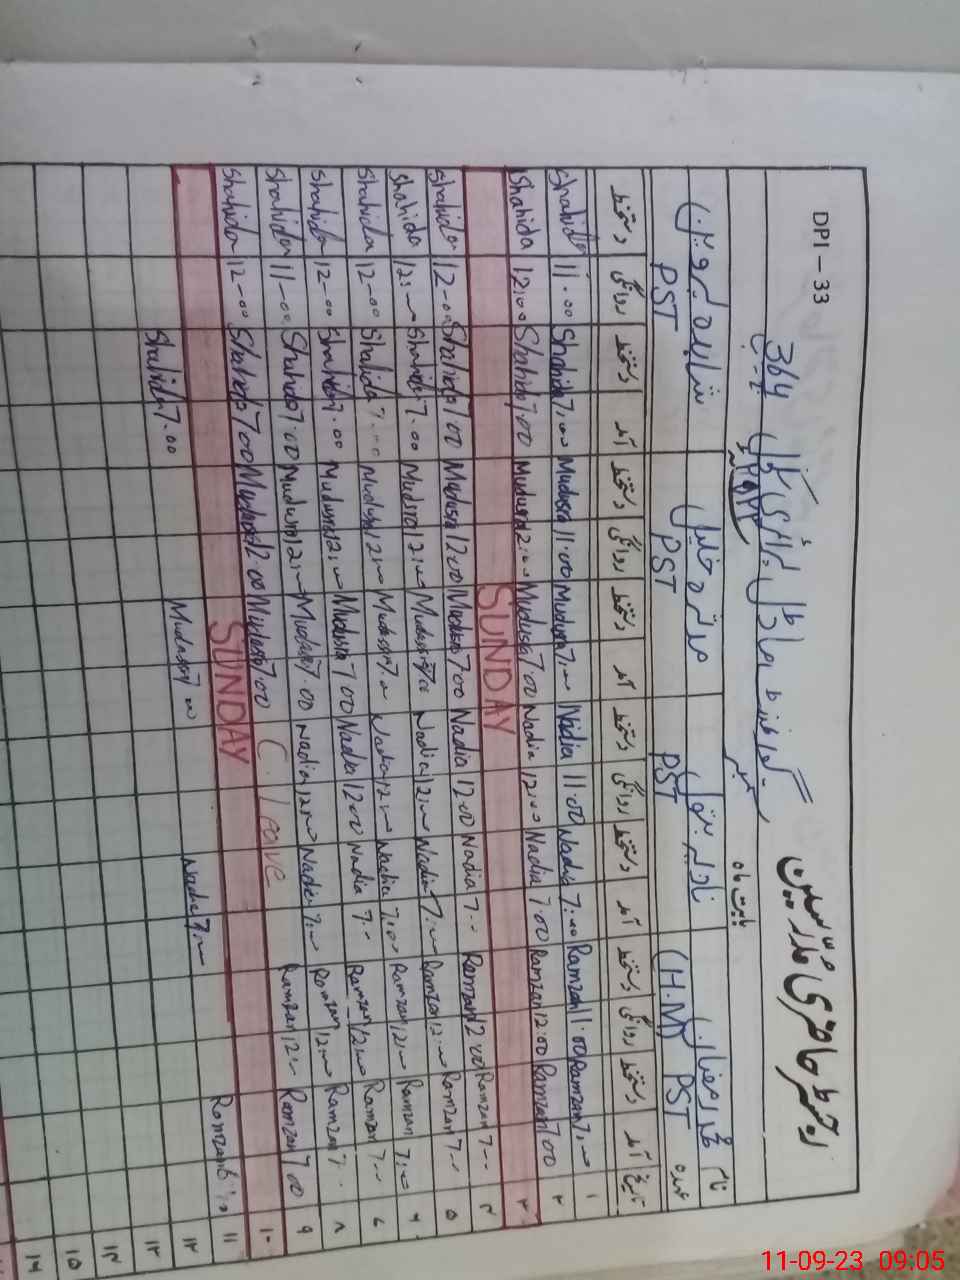 DPI – 33
رجسٹر حاضری مدرسین
بابت ماہ ستمبر
نام محمد رمضان نادیہ بتول مدثرہ خلیل شاہدہ پروین
عہدہ PST (H.M) PST PST PST
تاریخ آمد دستخط روانگی دستخط آمد دستخط روانگی دستخط آمد دستخط روانگی دستخط آمد دستخط روانگی دستخط
Shahida 11:00 Shahida 7:00 Mudusra 11:00 Mudusra 7:00 Nadia 11:00 Nadia 7:00 Ramzan 11:00 Ramzan 7:00 ۱
Shahida 12:00 Shahida 7:00 Mudusra 12:00 Mudusra 7:00 Nadia 12:00 Nadia 7:00 Ramzan 12:00 Ramzan 7:00 ۲
SUNDAY ۳
Shahida 12-00 Shahida 7:00 Mudusra 12:00 Mudusra 7:00 Nadia 12:00 Nadia 7:00 Ramzan 12:00 Ramzan 7:00 ۴
Shahida 12:00 Shahida 7:00 Mudusra 12:00 Mudusra 7:00 Nadia 12:00 Nadia 7:00 Ramzan 12:00 Ramzan 7:00 ۵
Shahida 12-00 Shahida 7:00 Mudusra 12:00 Mudusra 7:00 Nadia 12:00 Nadia 7:00 Ramzan 12:00 Ramzan 7:00 ۶
Shahida 12-00 Shahida 7:00 Mudusra 12:00 Mudusra 7:00 Nadia 12:00 Nadia 7:00 Ramzan 12:00 Ramzan 7:00
Shahida 11-00 Shahida 7:00 Mudusra 12:00 Mudusra 7:00 Nadia 12:00 Nadia 7:00 Ramzan 12:00 Ramzan 7:00 ۸
Shahida 12-00 Shahida 7:00 Mudusra 12:00 Mudusra 7:00 C. leave Ramzan 12:00 Ramzan 7:00 ۹
SUNDAY ۱۰
Shahida 7:00 Mudusra 7:00 Nadia 7:00 Ramzan ۱۱
۱۲
۱۳
۱۴
۱۵
11-09-23 09:05